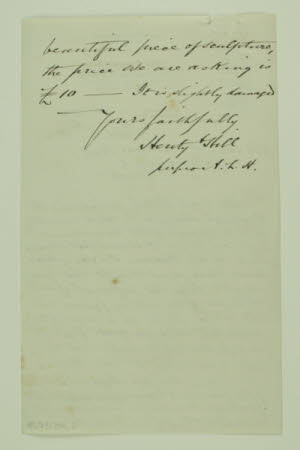 beautiful piece of sculpture,
the price we are asking is
£10 — It is slightly damaged
Yours faithfully
Henty & Hill
per pro A. L. H.